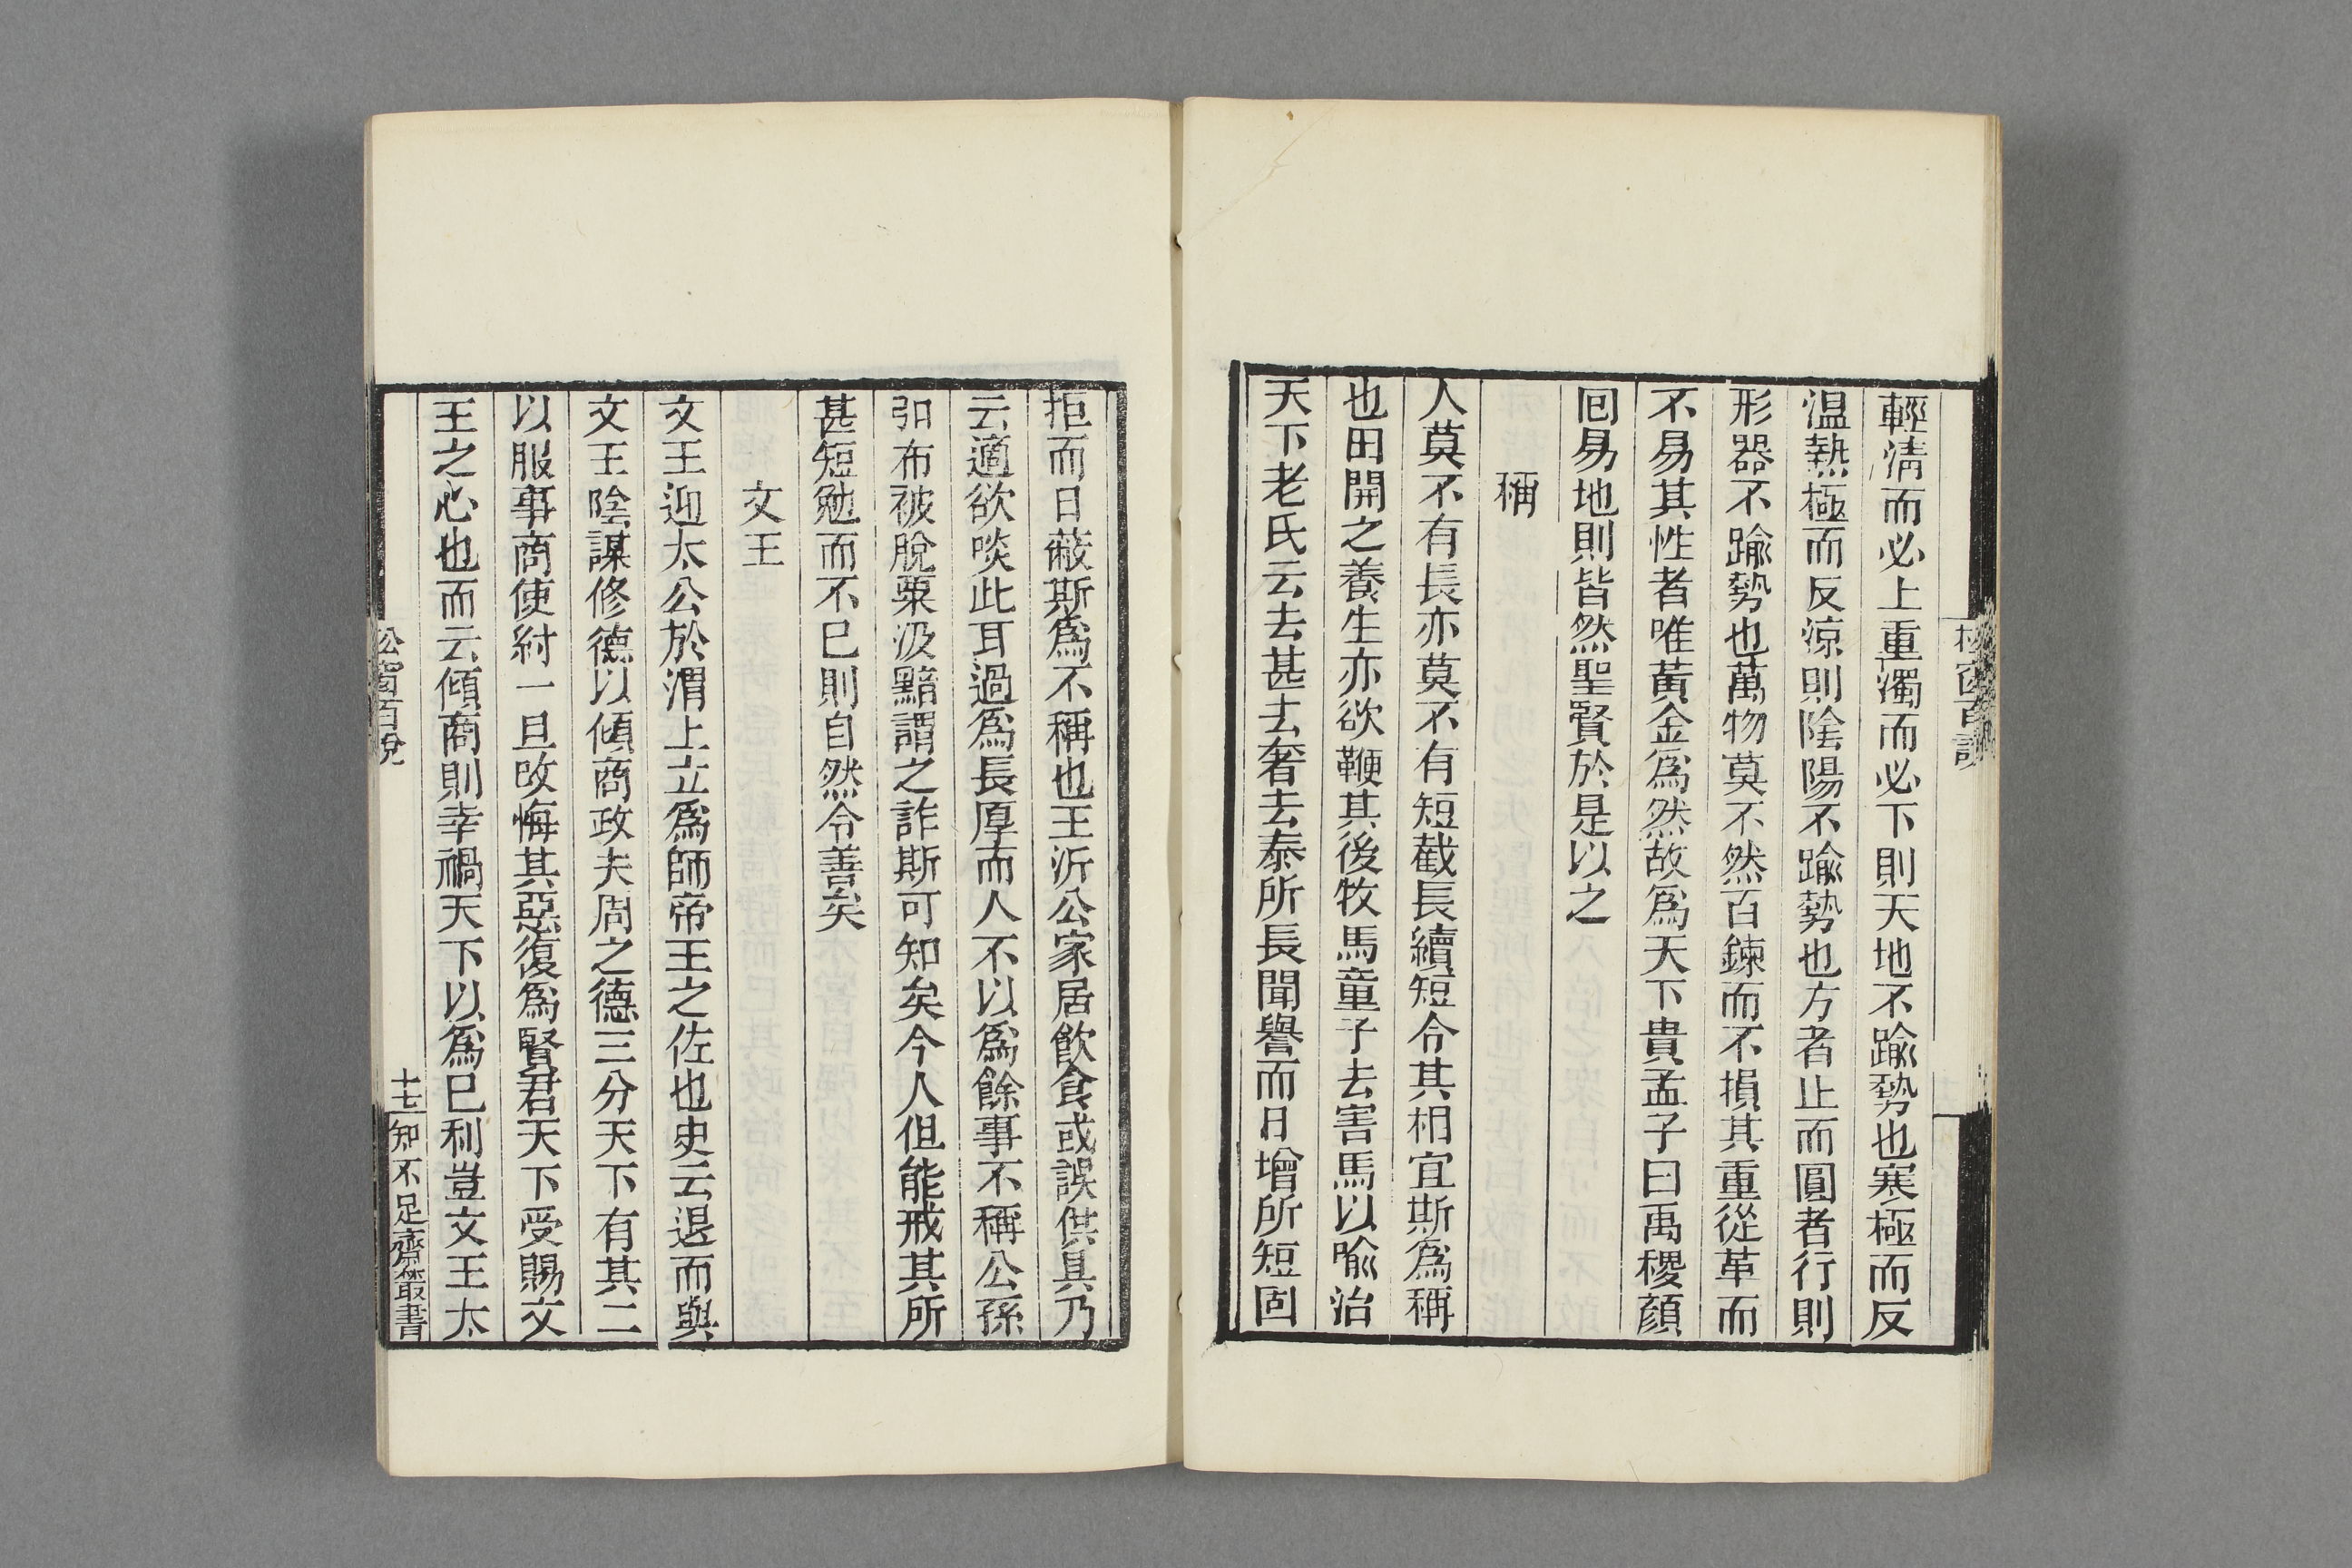 輕清而必上重濁而必下則天地不踰勢也寒極而反
温熱極而反涼則陰陽不踰勢也方者止而圓者行則
形器不踰勢也萬物莫不然百鍊而不損其重從革而
不易其性者唯黃金爲然故爲天下貴孟子曰禹稷顔
回易地則皆然聖賢於是以之
稱
人莫不有長亦莫不有短截長續短令其相宜斯爲稱
也田開之養生亦欲鞭其後牧馬童子去害馬以喻治
天下老氏云去甚去奢去泰所長聞譽而日增所短固
拒而日蔽斯爲不稱也王沂公家居飲食或誤供具乃
云適欲啖此耳過爲長厚而人不以爲餘事不稱公孫
弘布被脫粟汲黯謂之詐斯可知矣今人但能戒其所
甚短勉而不已則自然令善矣
文王
文王迎太公於渭上立爲師帝王之佐也史云退而與
文王陰謀修德以傾商政夫周之德三分天下有其二
以服事商使紂一旦改悔其惡復爲賢君天下受賜文
王之心也而云傾商則幸禍天下以爲已利豈文王太
松窗百說
十七
知不足齋叢書